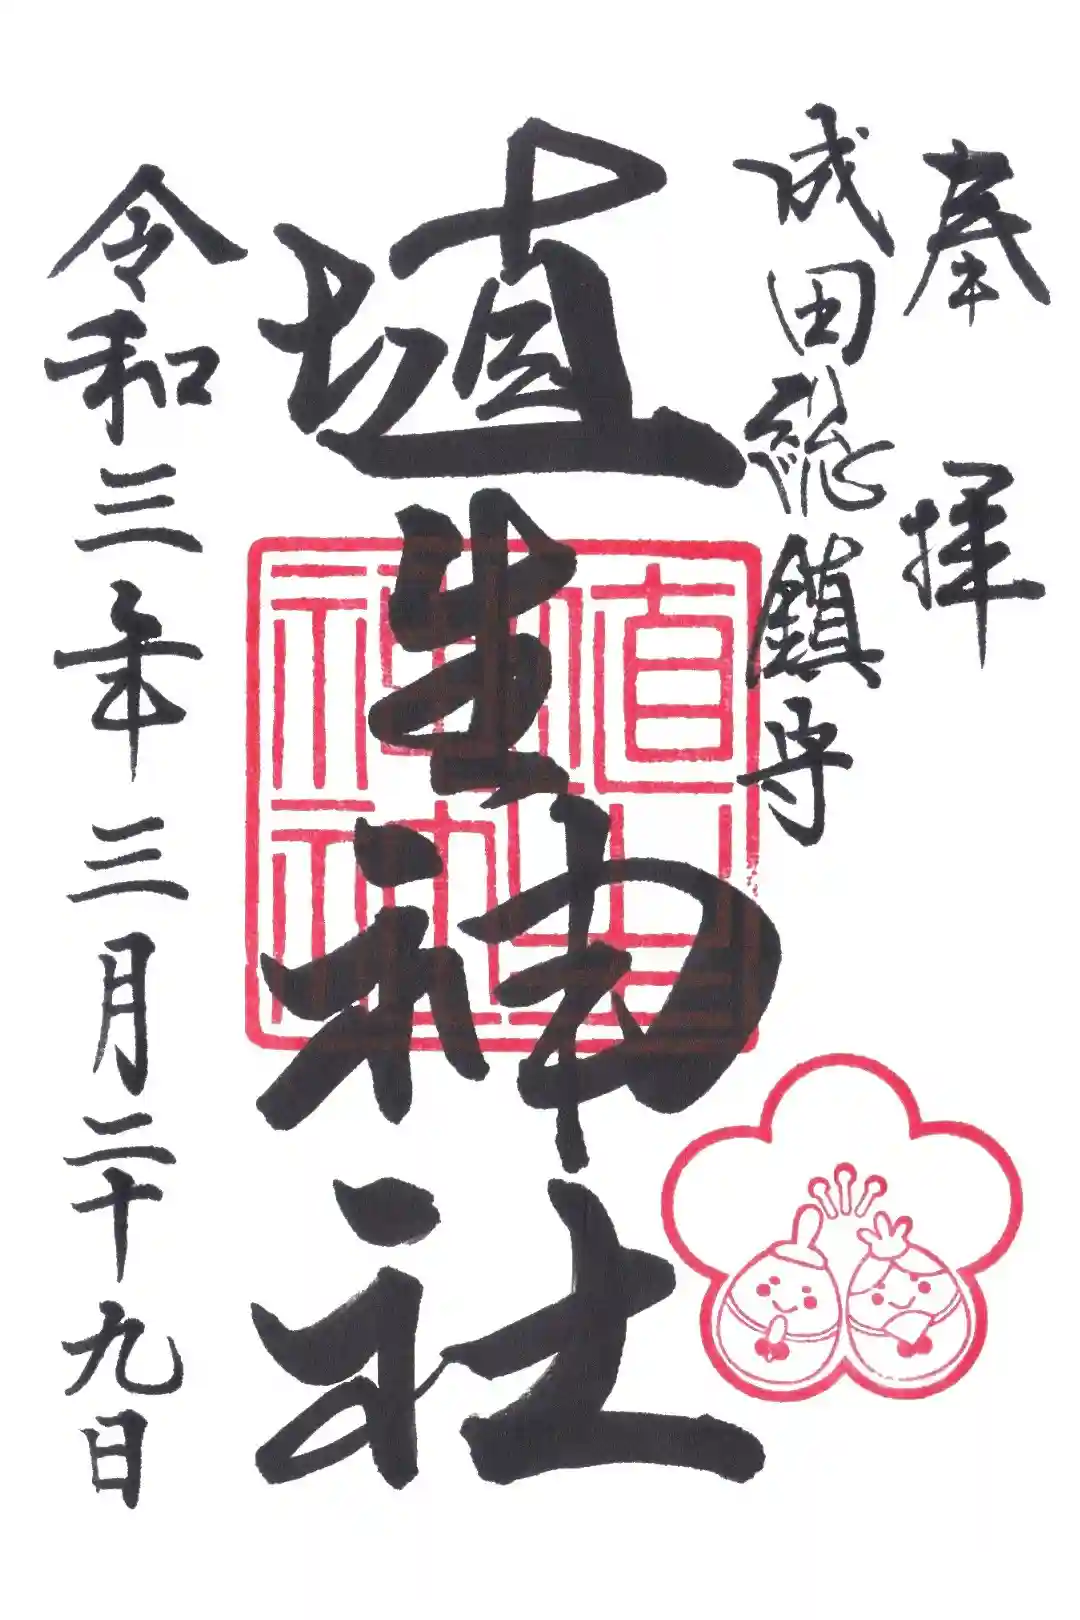 奉拝
成田総鎮守
埴生神社
令和三年三月二十九日